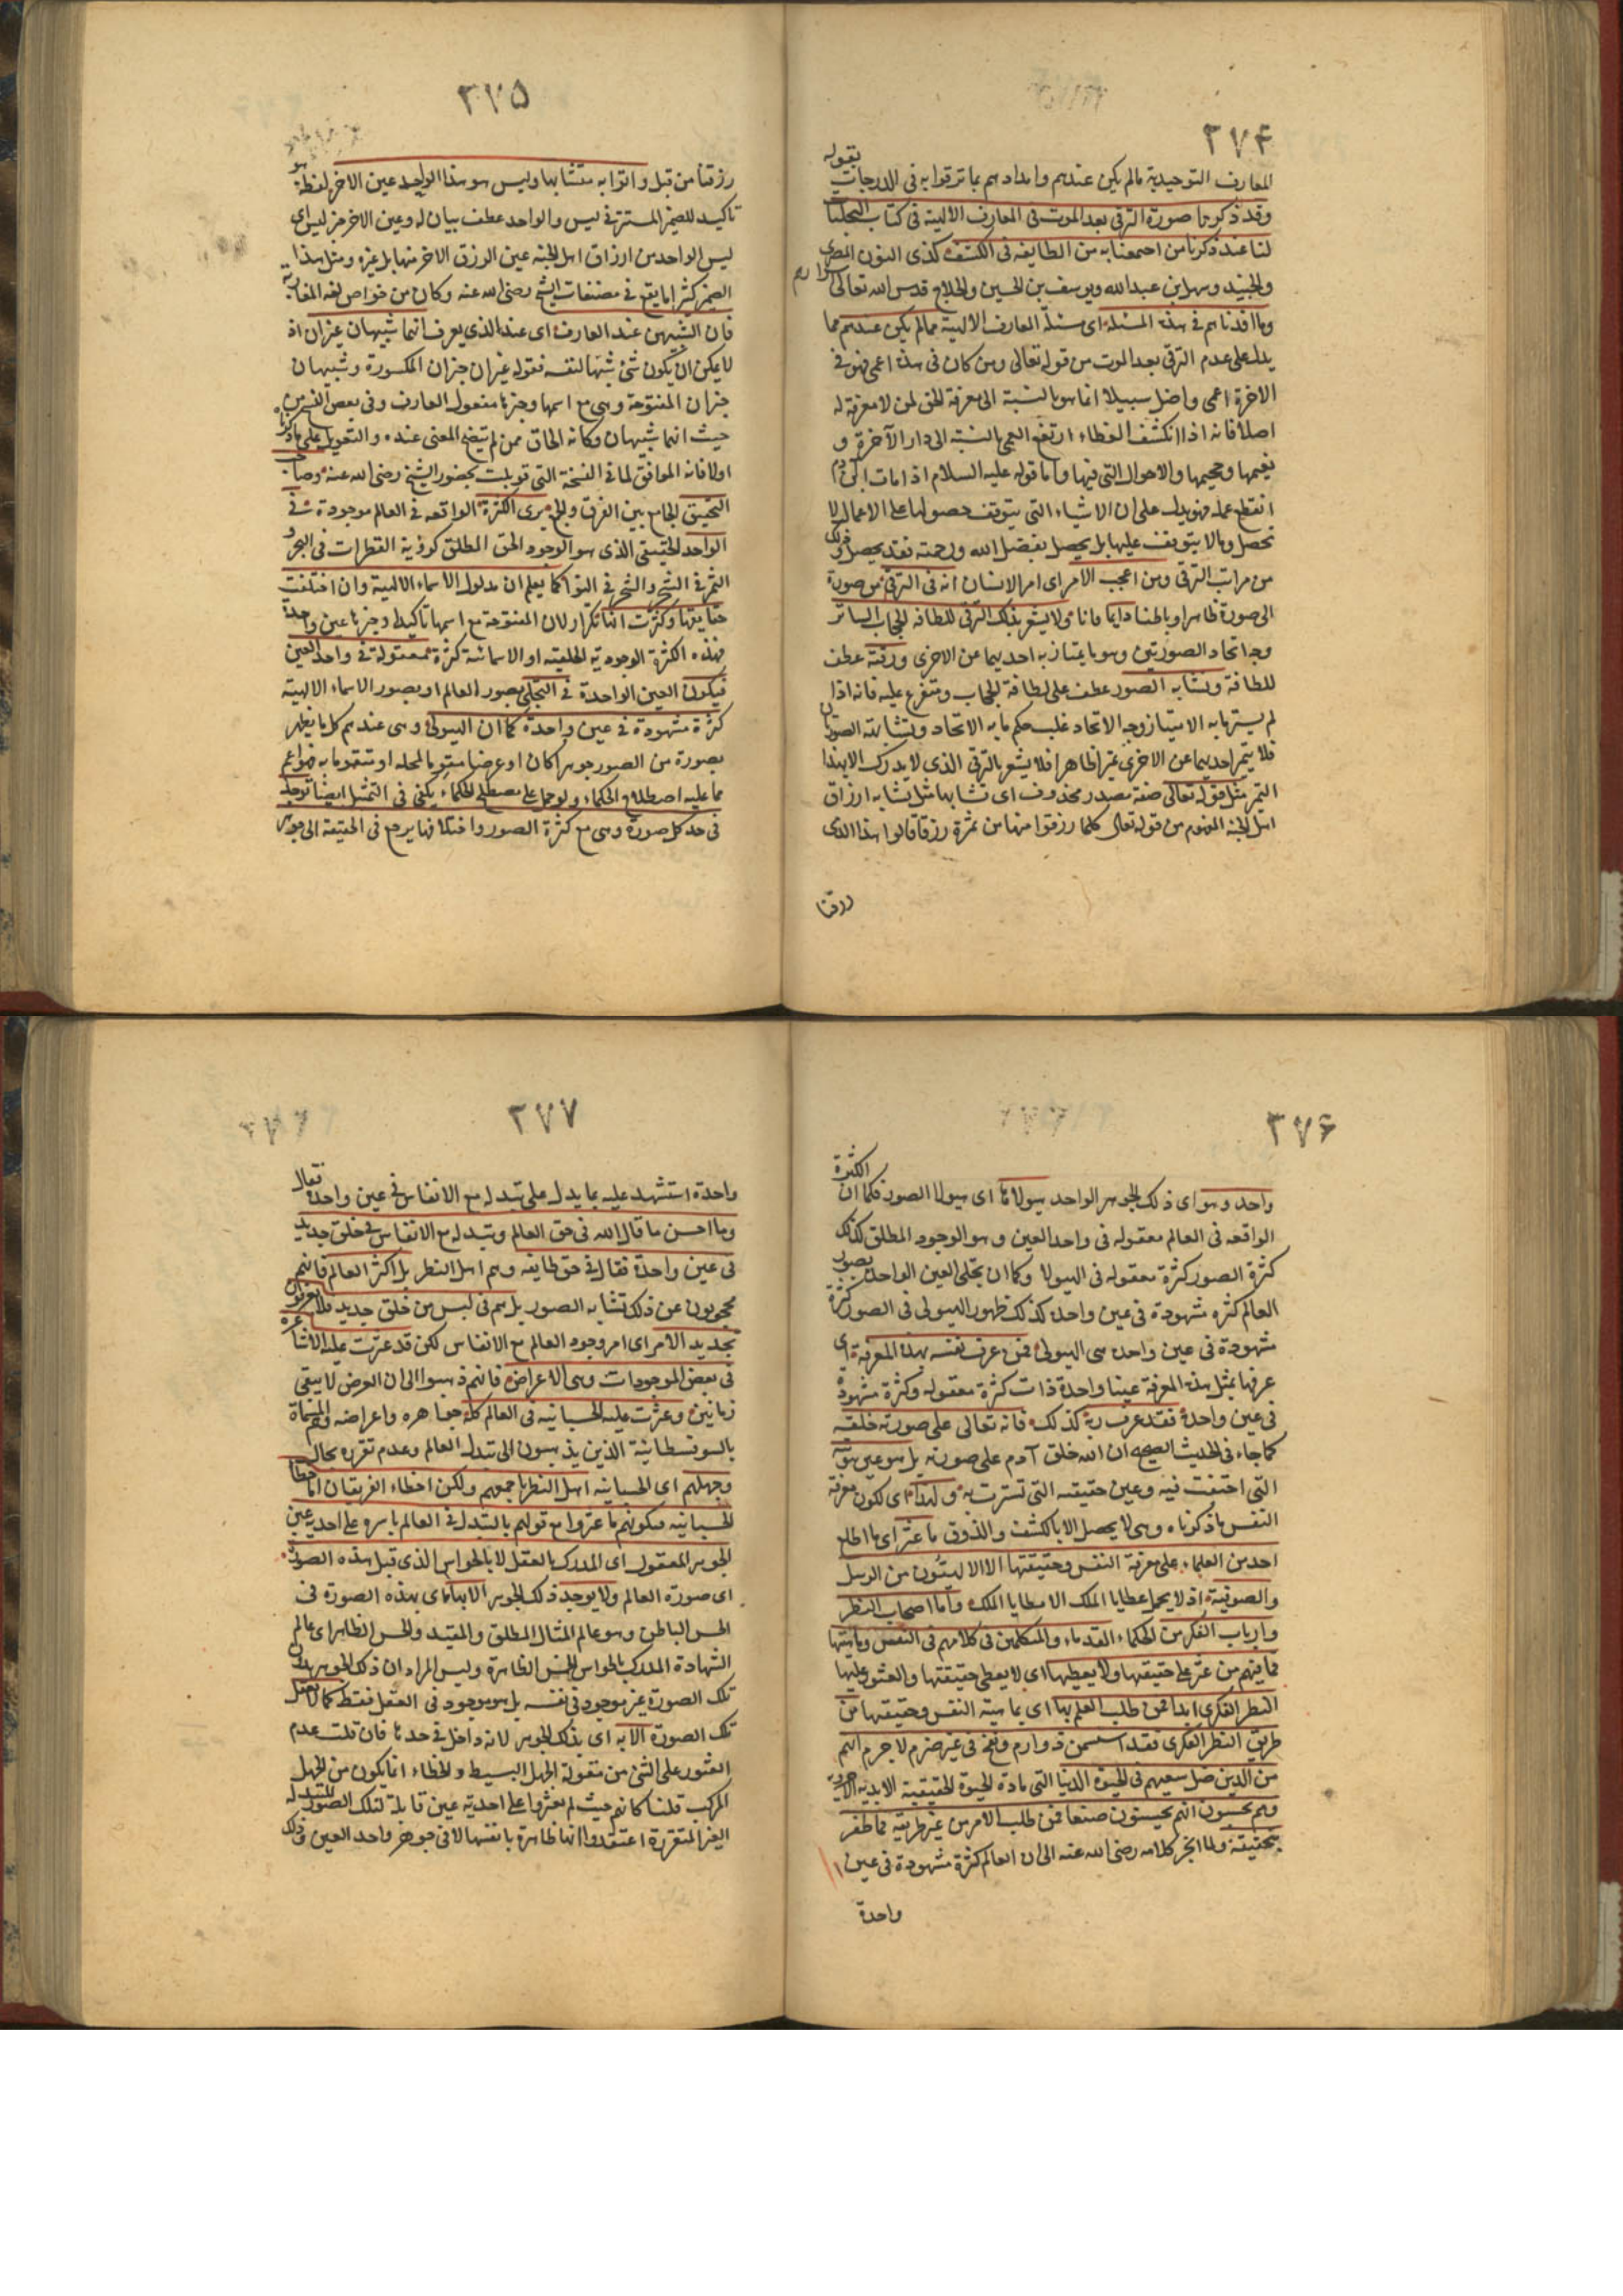 ٣٧۴
بقوله
المعارف التوحيدية مالم يكن عندهم وامدادهم بما ترقوا به فى الدرجات
وقد ذكرنا صورة الترقى بعد الموت فى المعارف الالهية فى كتاب التجليات
لنا عند ذكرنا من اجتمعنا به من الطايفة فى الكشف كذى النون المصرى
والجنيد وسهل بن عبد الله ويوسف بن الحسين والحلاج قدس الله تعالى اسرارهم
وما افدناهم فى هذه المسئلة اى مسئلة المعارف الالهية مما لم يكن عندهم مما
يدل على عدم الترقى بعد الموت من قوله تعالى ومن كان فى هذه اعمى فهو فى
الاخرة اعمى واضل سبيلا انما هو بالنسبة الى معرفة الحق لمن لا معرفة له
اصلا فانه اذا انكشف الغطاء ارتفع العمى بالنسبة الى دار الآخرة و
نعيمها وجحيمها والاحوال التى فيها واما قوله عليه السلام اذا مات ابن آدم
انقطع عمله فهو يدل على ان الاشياء التى يتوقف حصولها على الاعمال لا
تحصل وما لا يتوقف عليها بل يحصل بفضل الله ورحمته فقد يحصل وذلك
من مراتب الترقى ومن اعجب الامر اى امر الانسان انه فى الترقى من صورة
الى صورة ظاهرا وباطنا دايما فانا ولا يشعر بذلك الترقى للطافة الحجاب الساتر
وجه اتحاد الصورتين وهو ما يمتاز به احديهما عن الاخرى ورقته عطف
للطافة وتشابه الصور عطف على لطافة الحجاب ومتفرع عليه فانه اذا
لم يستر ما به الامتياز وجه الاتحاد غلب حكم ما به الاتحاد وتشابهت الصورتان
فلا يتميز احديهما عن الاخرى تميزا ظاهرا فلا يشعر بالترقى الذى لا يدرك الا بهذا
التميز مثل قوله تعالى صفة مصدر محذوف اى تشابها مثل تشابه ارزاق
اهل الجنة المفهوم من قوله تعالى كلما رزقوا منها من ثمرة رزقا قالوا هذا الذى
رزقنا
٣٧۵
رزقنا من قبل واتوا به متشابها وليس هو هذا الواحد عين الاخر لفظة هو
تاكيد للضمير المستتر فى ليس والواحد عطف بيان له وعين الاخر خبر ليس اى
ليس الواحد من ارزاق اهل الجنة عين الرزق الاخر منها بل غيره ومثل هذا
الضمير كثيرا ما يقع فى مصنفات الشيخ رضى الله عنه وكان من خواص لغة المغاربة
فان الشبيهين عند العارف اى عند الذى يعرف انهما شبيهان غيران اذ
لا يمكن ان يكون شئ شبيها لنفسه فقوله غيران خبر ان المكسورة وشبيهان
خبر ان المفتوحة وهى مع اسمها وخبرها مفعول العارف وفى بعض النسخ من
حيث انهما شبيهان وكانه الحاق ممن لم يتضح المعنى عنده والتعويل على ما ذكرناه
اولا فانه الموافق لما فى النسخة التى قوبلت بحضور الشيخ رضى الله عنه وصاحب
التحقيق الجامع بين الفرق والجمع يرى الكثرة الواقعة فى العالم موجودة فى
الواحد الحقيقى الذى هو الوجود الحق المطلق كرؤية القطرات فى البحر و
الثمر فى الشجر والشجر فى النواة كما يعلم ان مدلول الاسماء الالهية وان اختلفت
حقايقها وكثرت انها تكرار لان المفتوحة مع اسمها تاكيدا وخبرها عين واحدة
فهذه الكثرة الوجودية الخلقية او الاسمائية كثرة معقولة فى واحد العين
فيكون العين الواحدة فى التجلى بصور العالم او بصور الاسماء الالهية
كثرة مشهودة فى عين واحدة كما ان الهيولى وهى عندهم كل ما يظهر
بصورة من الصور جوهرا كان او عرضا مقوما لمحله او متقوما به فهو اعم
مما عليه اصطلاح الحكماء ولو حمل على مصطلح الحكماء يكفى فى التمثيل ايضا توجد
فى حد كل صورة وهى مع كثرة الصور واختلافها يرجع فى الحقيقة الى جوهر
٣٧۶
الكثرة
واحد وهو اى ذلك الجوهر الواحد هيولاها اى هيولا الصور فكما ان
الواقعة فى العالم معقولة فى واحد العين وهو الوجود المطلق كذلك
كثرة الصور كثرة معقولة فى الهيولا وكما ان تجلى العين الواحدة بصور
العالم كثرة مشهودة فى عين واحدة كذلك ظهور الهيولى فى الصور كثرة
مشهودة فى عين واحدة هى الهيولى فمن عرف نفسه بهذه المعرفة اى
عرفها بمثل هذه المعرفة عينا واحدة ذات كثرة معقولة وكثرة مشهودة
فى عين واحدة فقد عرف ربه كذلك فانه تعالى على صورته خلقه
كما جاء فى الحديث الصحيح ان الله خلق آدم على صورته بل هو عين هويته
التى اختفت فيه وعين حقيقته التى تسترت به ولهذا اى لكون معرفة
النفس ما ذكرناه وهى لا يحصل الا بالكشف والذوق ما عثر اى ما اطلع
احد من العلماء على معرفة النفس وحقيقتها الا الالهيون من الرسل
والصوفية اذ لا يحمل عطايا الملك الا مطايا الملك واما اصحاب النظر
وارباب الفكر من الحكماء القدماء والمتكلمين فى كلامهم فى النفس وماهيتها
فما منهم من عثر على حقيقتها ولا يعطيها اى لا يعطى حقيقتها والعثور عليها
النظر الفكرى ابدا فمن طلب العلم بها اى بماهية النفس وحقيقتها من
طريق النظر الفكرى فقد استسمن ذا ورم ونفخ فى غير ضرم لا جرم انهم
من الذين ضل سعيهم فى الحيوة الدنيا التى مادة الحيوة الحقيقية الابدية الاخروية
وهم يحسبون انهم يحسنون صنعا فمن طلب الامر من غير طريقه فما ظفر
بتحقيقه ولما انجر كلامه رضى الله عنه الى ان العالم كثرة مشهودة فى عين
واحدة
٣٧٧
واحدة استشهد عليه بما يدل على تبدله مع الانفاس فى عين واحدة فقال
وما احسن ما قال الله فى حق العالم وتبدله مع الانفاس فى خلق جديد
فى عين واحدة فقال فى حق طايفة وهم اهل النظر بل اكثر العالم فانهم
محجوبون عن ذلك تشابه الصور بل هم فى لبس من خلق جديد فلا يعرفون
تجديد الامر اى امر وجود العالم مع الانفاس لكن قد عثرت عليه الاشاعرة
فى بعض الموجودات وهى الاعراض فانهم ذهبوا الى ان العرض لا يبقى
زمانين وعثرت عليه الحسبانية فى العالم كله جواهره واعراضه وهم المسماة
بالسوفسطائية الذين يذهبون الى تبدل العالم وعدم تقرره بحال
وجهلهم اى الحسبانية اهل النظر باجمعهم ولكن اخطاء الفريقان اما خطا
الحسبانية فبكونهم ما عثروا مع قولهم بالتبدل فى العالم باسره على احدية عين
الجوهر المعقول اى المدرك بالعقل لا بالحواس الذى قبل هذه الصورة
اى صورة العالم ولا يوجد ذلك الجوهر الا بها اى بهذه الصورة فى
الحس الباطن وهو عالم المثال المطلق والمقيد والحس الظاهر اى عالم
الشهادة المدرك بالحواس الخمس الظاهرة وليس المراد ان ذلك الجوهر بدون
تلك الصورة غير موجود فى نفسه بل هو موجود فى العقل فقط كما لا تعقل
تلك الصورة الا به اى بذلك الجوهر لانه داخل فى حدها فان قلت عدم
العثور على الشئ من مقولة الجهل البسيط والخطاء انما يكون من الجهل
المركب قلنا كانهم حيث لم يعثروا على احدية عين قابلة لتلك الصور المتبدلة
الغير المتقررة اعتقدوا انها ظاهرة بانفسها لا فى جوهر واحد العين وذلك